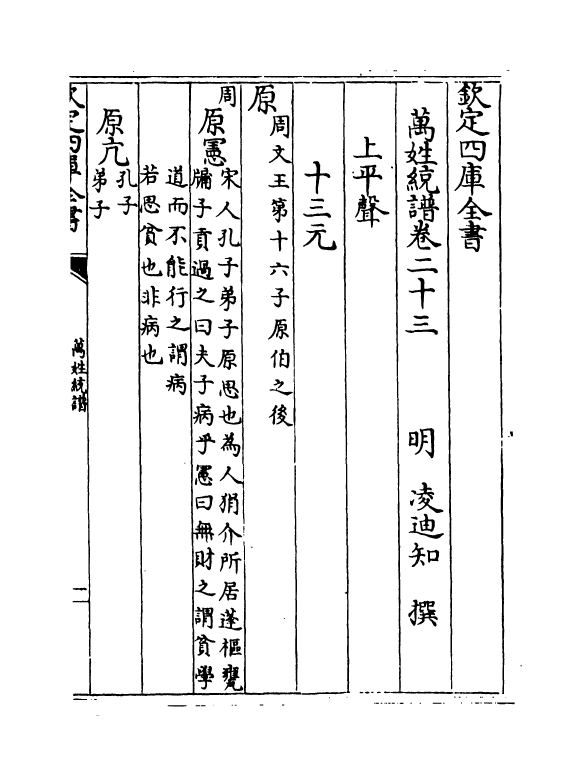 欽定四庫全書
萬姓統譜卷二十三
明 凌迪知 撰
上平聲
十三元
原
周文王第十六子原伯之後
周
原憲
宋人孔子弟子原思也為人狷介所居蓬樞甕
牖子貢過之曰夫子病乎憲曰無財之謂貧學
道而不能行之謂病
若思貧也非病也
原亢
孔子
弟子
欽定四庫全書
萬姓統譜
一